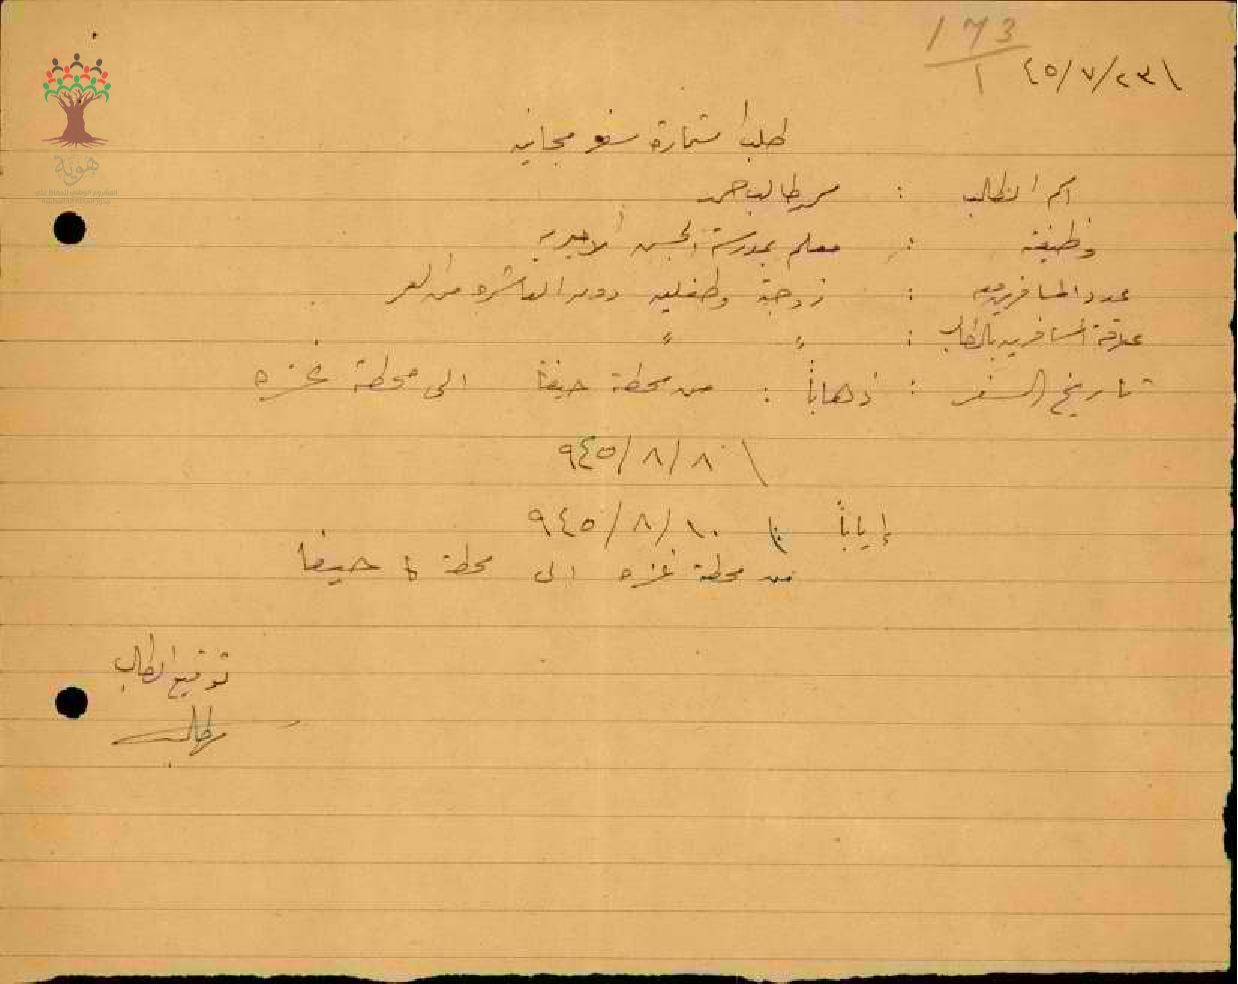 173
1
٤٥/٧/٢٣
طلب استمارة سفر مجانيه
اسم الطالب :
وظيفته : معلم بمدرسة الاميريه
عدد المسافرين معه : زوجة وطفلين دون العاشره من العمر
علاقة المسافرين بالطالب : " "
تاريخ السفر : ذهاباً : من محطة حيفا الى محطة غزه
٩٤٥/٨/٨
إياباً ٩٤٥/٨/١٠
من محطة غزه الى محطة حيفا
توقيع الطالب
هوية